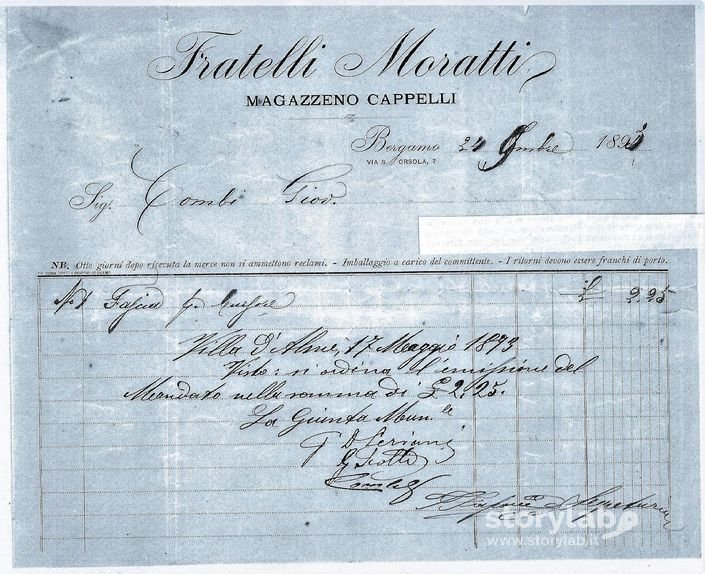 Fratelli Moratti
MAGAZZENO CAPPELLI
Bergamo 189
VIA S. ORSOLA, 7
Sig. Combi Giov.
NB. Otto giorni dopo ricevuta la merce non si ammettono reclami. - Imballaggio a carico del committente. - I ritorni devono essere franchi di porto.
N. 1 £ 2.25
Villa d'Almè, 17 Maggio 1893
Visto: si ordina l'emissione del
Mandato nella somma di £ 2,25.
La Giunta Mun.le
G Scotti
storylab
www.storylab.it